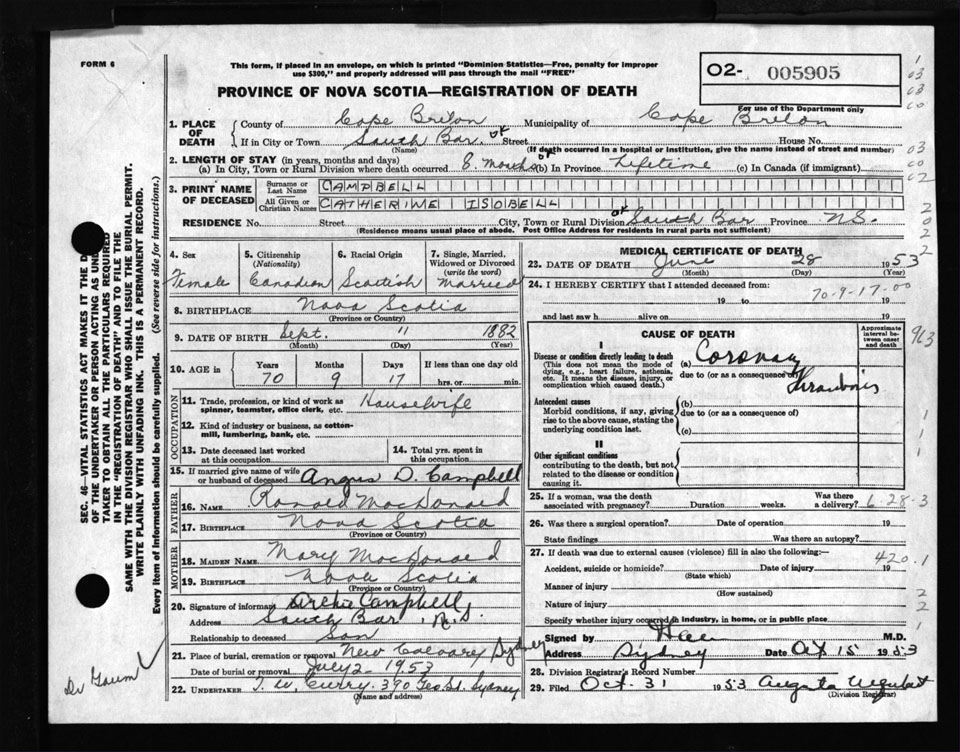 FORM 6
This form, if placed in an envelope, on which is printed "Dominion Statistics—Free, penalty for improper
use $300," and properly addressed will pass through the mail "FREE"
O2- 005905
For use of the Department only
PROVINCE OF NOVA SCOTIA—REGISTRATION OF DEATH
1. PLACE OF DEATH
County of Cape Breton Municipality of Cape Breton
If in City or Town South Bar. Street House No.
(Name) (If death occurred in a hospital or institution, give the name instead of street and number)
2. LENGTH OF STAY (in years, months and days)
(a) In City, Town or Rural Division where death occurred 8. months (b) In Province Lifetime (c) In Canada (if immigrant)
3. PRINT NAME OF DECEASED
Surname or Last Name CAMPBELL
All Given or Christian Names CATHERINE ISOBELL
RESIDENCE No. Street City, Town or Rural Division South Bar Province N.S.
(Residence means usual place of abode. Post Office Address for residents in rural parts not sufficient)
4. Sex Female
5. Citizenship (Nationality) Canadian
6. Racial Origin Scotish
7. Single, Married, Widowed or Divorced (write the word) Married
8. BIRTHPLACE Nova Scotia
(Province or Country)
9. DATE OF BIRTH Sept. 11 1882
(Month) (Day) (Year)
10. AGE in Years Months Days If less than one day old
70 9 17 hrs. or min.
OCCUPATION
11. Trade, profession, or kind of work as spinner, teamster, office clerk, etc. Housewife
12. Kind of industry or business, as cotton-mill, lumbering, bank, etc.
13. Date deceased last worked at this occupation
14. Total yrs. spent in this occupation
15. If married give name of wife or husband of deceased Angus D. Campbell
FATHER
16. NAME Ronald MacDonald
17. BIRTHPLACE Nova Scotia
(Province or Country)
MOTHER
18. MAIDEN NAME Mary MacDonald
19. BIRTHPLACE Nova Scotia
(Province or Country)
20. Signature of informant Archie Campbell
Address South Bar, N.S.
Relationship to deceased Son
21. Place of burial, cremation or removal New Calvary Sydney
Date of burial or removal July 2 - 1953
22. UNDERTAKER T. W. Curry. 390 Geo. St. Sydney
(Name and address)
MEDICAL CERTIFICATE OF DEATH
23. DATE OF DEATH June 28 1953
(Month) (Day) (Year)
24. I HEREBY CERTIFY that I attended deceased from:
19 to 19
70-9-17-00
and last saw h alive on 19
CAUSE OF DEATH
Approximate interval between onset and death
I
Disease or condition directly leading to death
(This does not mean the mode of dying, e.g., heart failure, asthenia, etc. It means the disease, injury, or complication which caused death.)
(a) Coronary
due to (or as a consequence of) Thrombosis
Antecedent causes
Morbid conditions, if any, giving rise to the above cause, stating the underlying condition last.
(b)
due to (or as a consequence of)
(c)
II
Other significant conditions
contributing to the death, but not related to the disease or condition causing it.
25. If a woman, was the death associated with pregnancy? Duration weeks. Was there a delivery?
6-28-3
26. Was there a surgical operation? Date of operation 19
State findings Was there an autopsy?
27. If death was due to external causes (violence) fill in also the following:—
420.1
Accident, suicide or homicide? Date of injury 19
(State which)
Manner of injury
(How sustained)
Nature of injury
Specify whether injury occurred in industry, in home, or in public place
Signed by M.D.
Address Sydney Date Oct 15 1953
28. Division Registrar's Record Number
29. Filed Oct. 31 1953 Augusta
(Division Registrar)
SEC. 46—VITAL STATISTICS ACT MAKES IT THE
OF THE UNDERTAKER OR PERSON ACTING AS
TAKER TO OBTAIN ALL THE PARTICULARS REQUIRED
IN THE "REGISTRATION OF DEATH" AND TO FILE THE
SAME WITH THE DIVISION REGISTRAR WHO SHALL ISSUE THE BURIAL PERMIT.
WRITE PLAINLY WITH UNFADING INK. THIS IS A PERMANENT RECORD.
Every item of information should be carefully supplied. (See reverse side for instructions.)